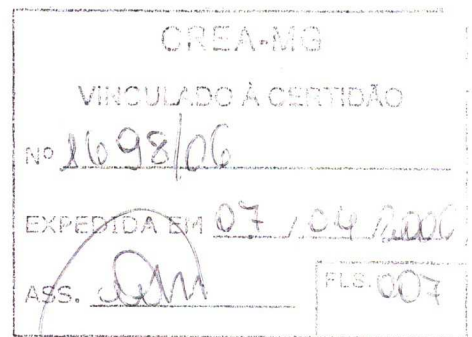 CREA-MG
VINCULADO À CERTIDÃO
Nº 1698/06
EXPEDIDA EM 07 / 04 / 2006
ASS.
FLS. 007